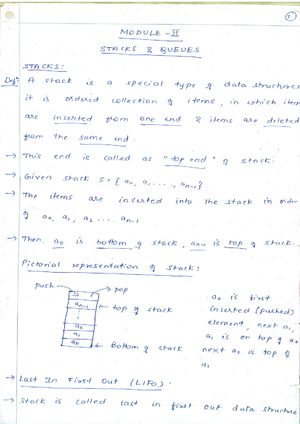 1
MODULE - II
STACKS & QUEUES
STACKS:
Defn: A stack is a special type of data structures
it is ordered collection of items, in which item
are inserted from one end & items are deleted
from the same end.
→ This end is called as "top end" of stack.
→ Given stack S = { a0, a1 ...., an-1}
→ The items are inserted into the stack in order
of a0, a1, a2 .... an-1
→ Then, a0 is bottom of stack, an-1 is top of stack.
Pictorial representation of stack:
push pop
an-1 top of stack
a2
a1
a0 Bottom of stack
a0 is first
inserted (pushed)
element, next a1,
a1 is on top of a0
next a2 is top of
a1
→ Last In First Out (LIFO).
→ Stack is called last in first out data structure